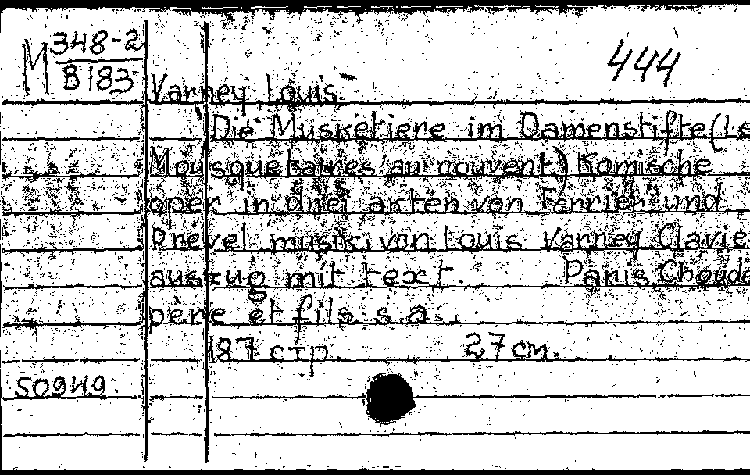 M 348-2
B183
444
Varney, Louis.
Die Musketiere im Damenstifte (Les
Mousquetaires au couvent) Komische
oper in drei akten von Ferrier und
Prével musik von Louis Varney Clavie
auszug mit text. Paris, Choude
père et fils s.a.
187 стр. 27 cm.
50949.